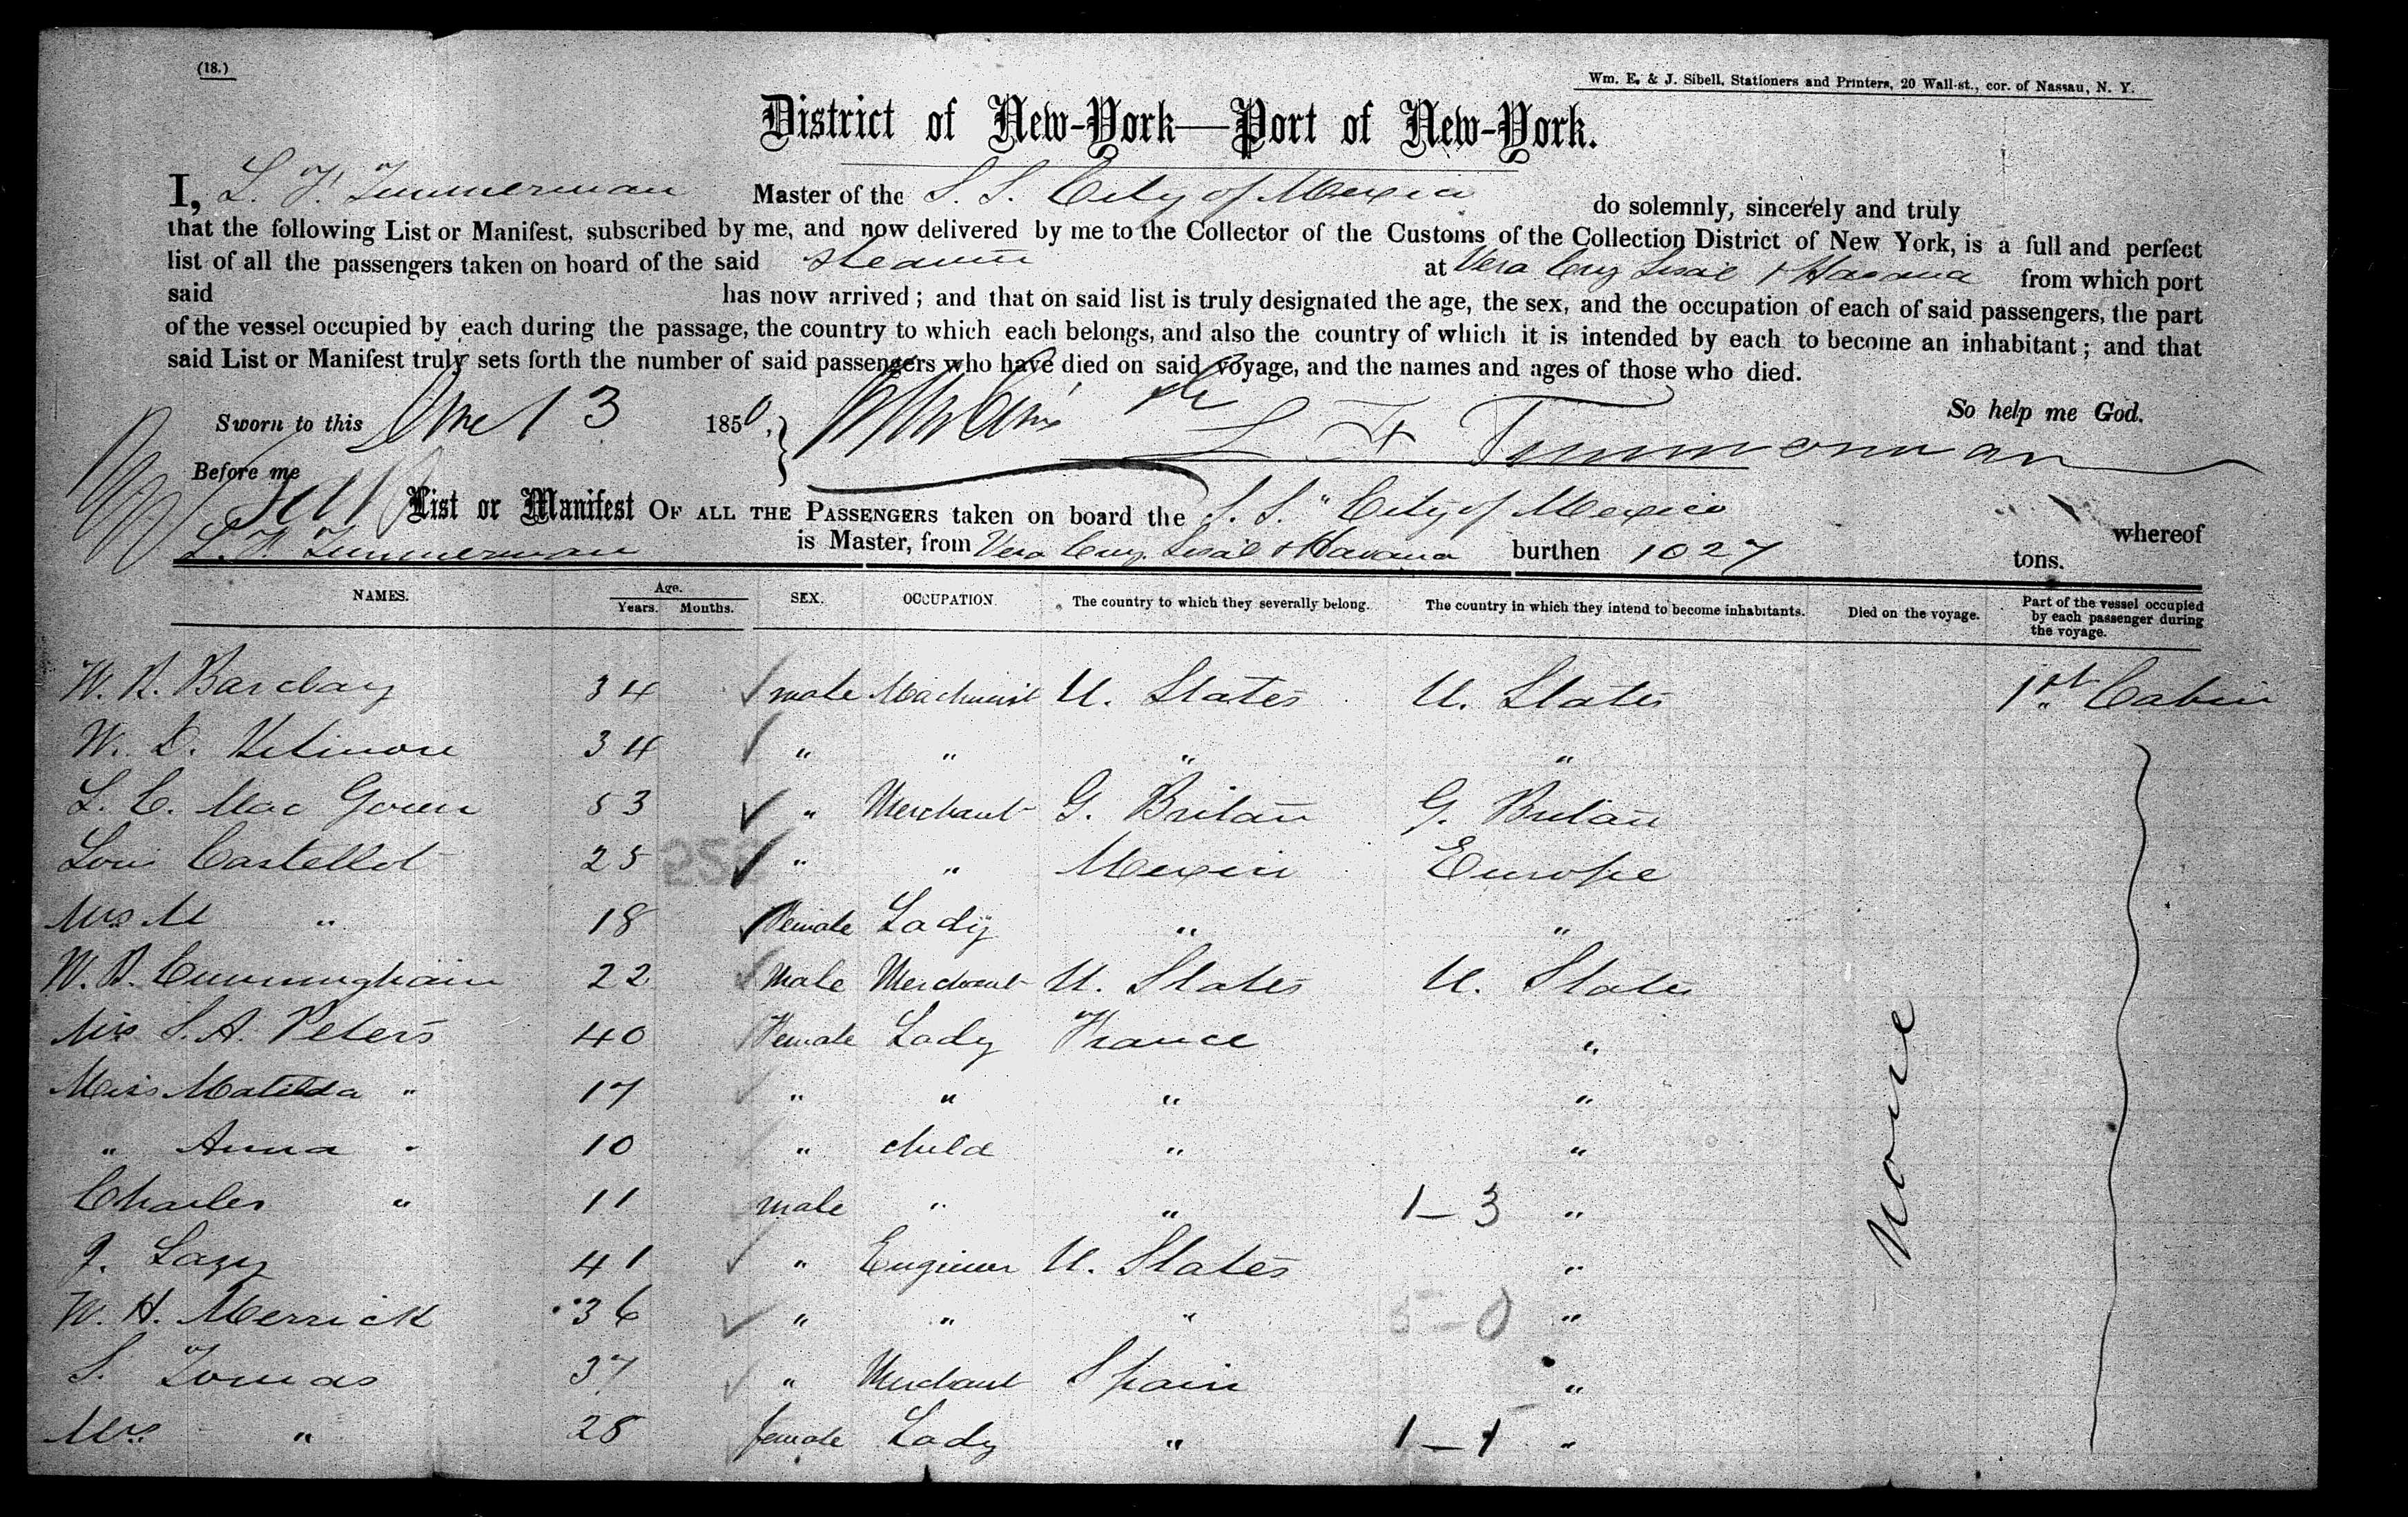 (18.)
Wm. E. & J. Sibell, Stationers and Printers, 20 Wall-st., cor. of Nassau, N. Y.
District of New-York—Port of New-York.
I, L. F. Timmerman Master of the S. S. City of Mexico do solemnly, sincerely and truly
that the following List or Manifest, subscribed by me, and now delivered by me to the Collector of the Customs of the Collection District of New York, is a full and perfect
list of all the passengers taken on board of the said steamer at Vera Cruz Sisal & Havana from which port
said has now arrived; and that on said list is truly designated the age, the sex, and the occupation of each of said passengers, the part
of the vessel occupied by each during the passage, the country to which each belongs, and also the country of which it is intended by each to become an inhabitant; and that
said List or Manifest truly sets forth the number of said passengers who have died on said voyage, and the names and ages of those who died.
So help me God.
Sworn to this June 13 1850, L F Timmerman
Before me
List or Manifest OF ALL THE PASSENGERS taken on board the S. S. "City of Mexico whereof
L. F. Timmerman is Master, from Vera Cruz. Sisal & Havana burthen 1027 tons.
NAMES. Age. Years. Months. SEX. OCCUPATION. The country to which they severally belong. The country in which they intend to become inhabitants. Died on the voyage. Part of the vessel occupied by each passenger during the voyage.
W. R. Barclay 34 male Machinist U. States U. States 1st Cabin
W. D. 34 " " " "
L. C. Mac Gowen 53 " Merchant G. Britain G. Britain
Louis Castellot 25 " " Mexico Europe
Mrs M " 18 Female Lady " "
W. B. Cunningham 22 Male Merchant U. States U. States
Mrs S. A. Peters 40 Female Lady France "
Miss Matilda " 17 " " " "
" Anna " 10 " child " "
Charles " 11 male " " 1–3 "
J. 41 " Engineer U. States "
W. H. Merrick 36 " " " 5–0 "
S. Tomas 37 " Merchant Spain "
Mrs " 28 female Lady " 1–1 "
None